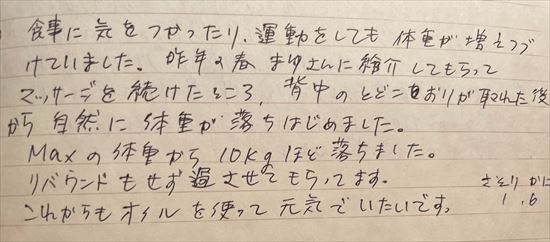 食事に気をつかったり、運動をしても体重が増えつづ
けていました。昨年の春まゆさんに紹介してもらって
マッサージを続けたところ、背中のとどこおりが取れた後
から自然に体重が落ちはじめました。
Maxの体重から10kgほど落ちました。
リバウンドもせず過させてもらってます。
これからもオイルを使って元気でいたいです。
さそり かに
1.6